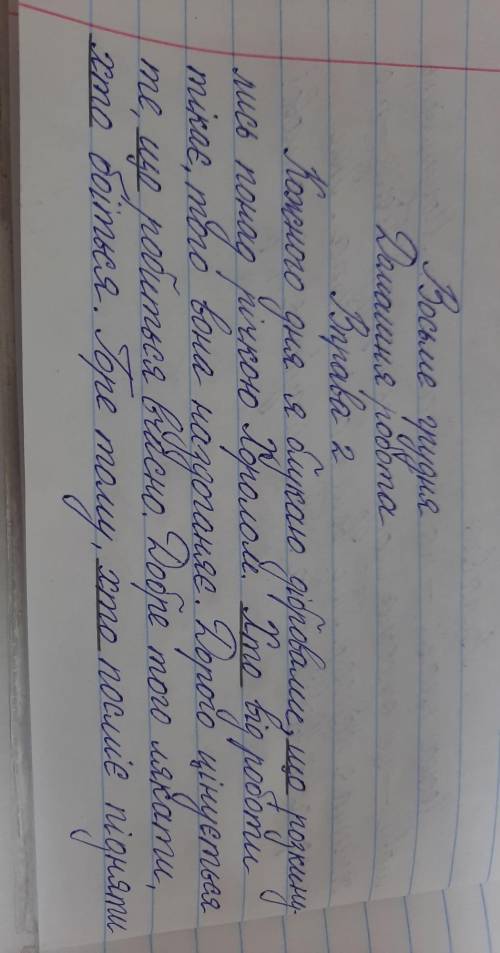 Восьме грудня
Домашня робота
Вправа 2
Кожного дня я блукаю дібровами, що розкину-
лись понад річкою Хоролом. Хто від роботи
тікає, того вона наздоганяє. Дорого цінується
те, що робиться вчасно. Добре того лякати,
хто боїться. Горе тому, хто посміє підняти